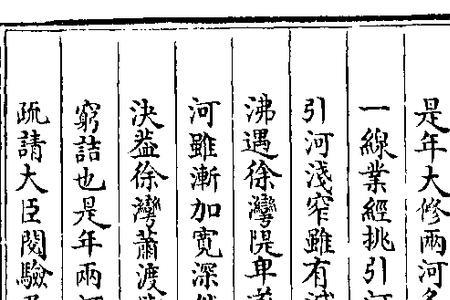 是年大修兩河
一線業經挑引河
引河淺窄雖有
沸遇徐灣隄卑
河雖漸加寬深
決蓋徐灣蕭渡
窮詰也是年兩
疏請大臣閱驗